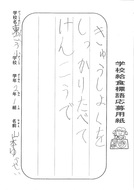 学校給食標語応募用紙
きゅうしょくを
しっかりたべて
けんこうで
学校名
小学校
学年
年
組
名前